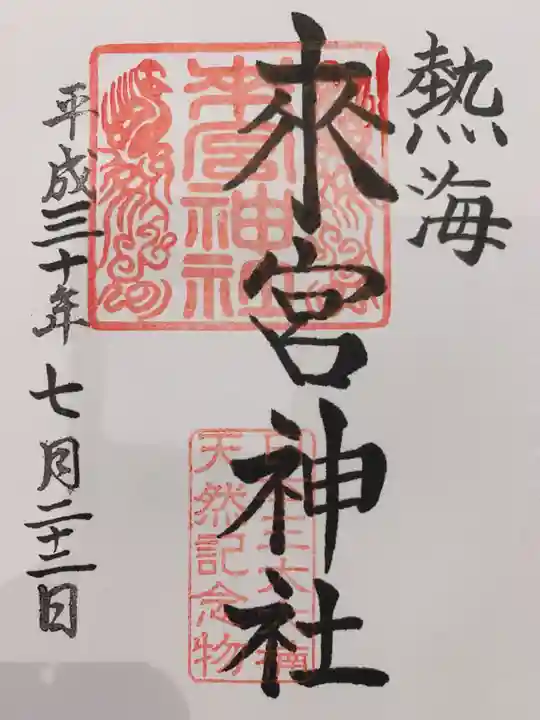 熱海
來宮神社
平成三十年七月二十二日
來宮神社
天然記念物